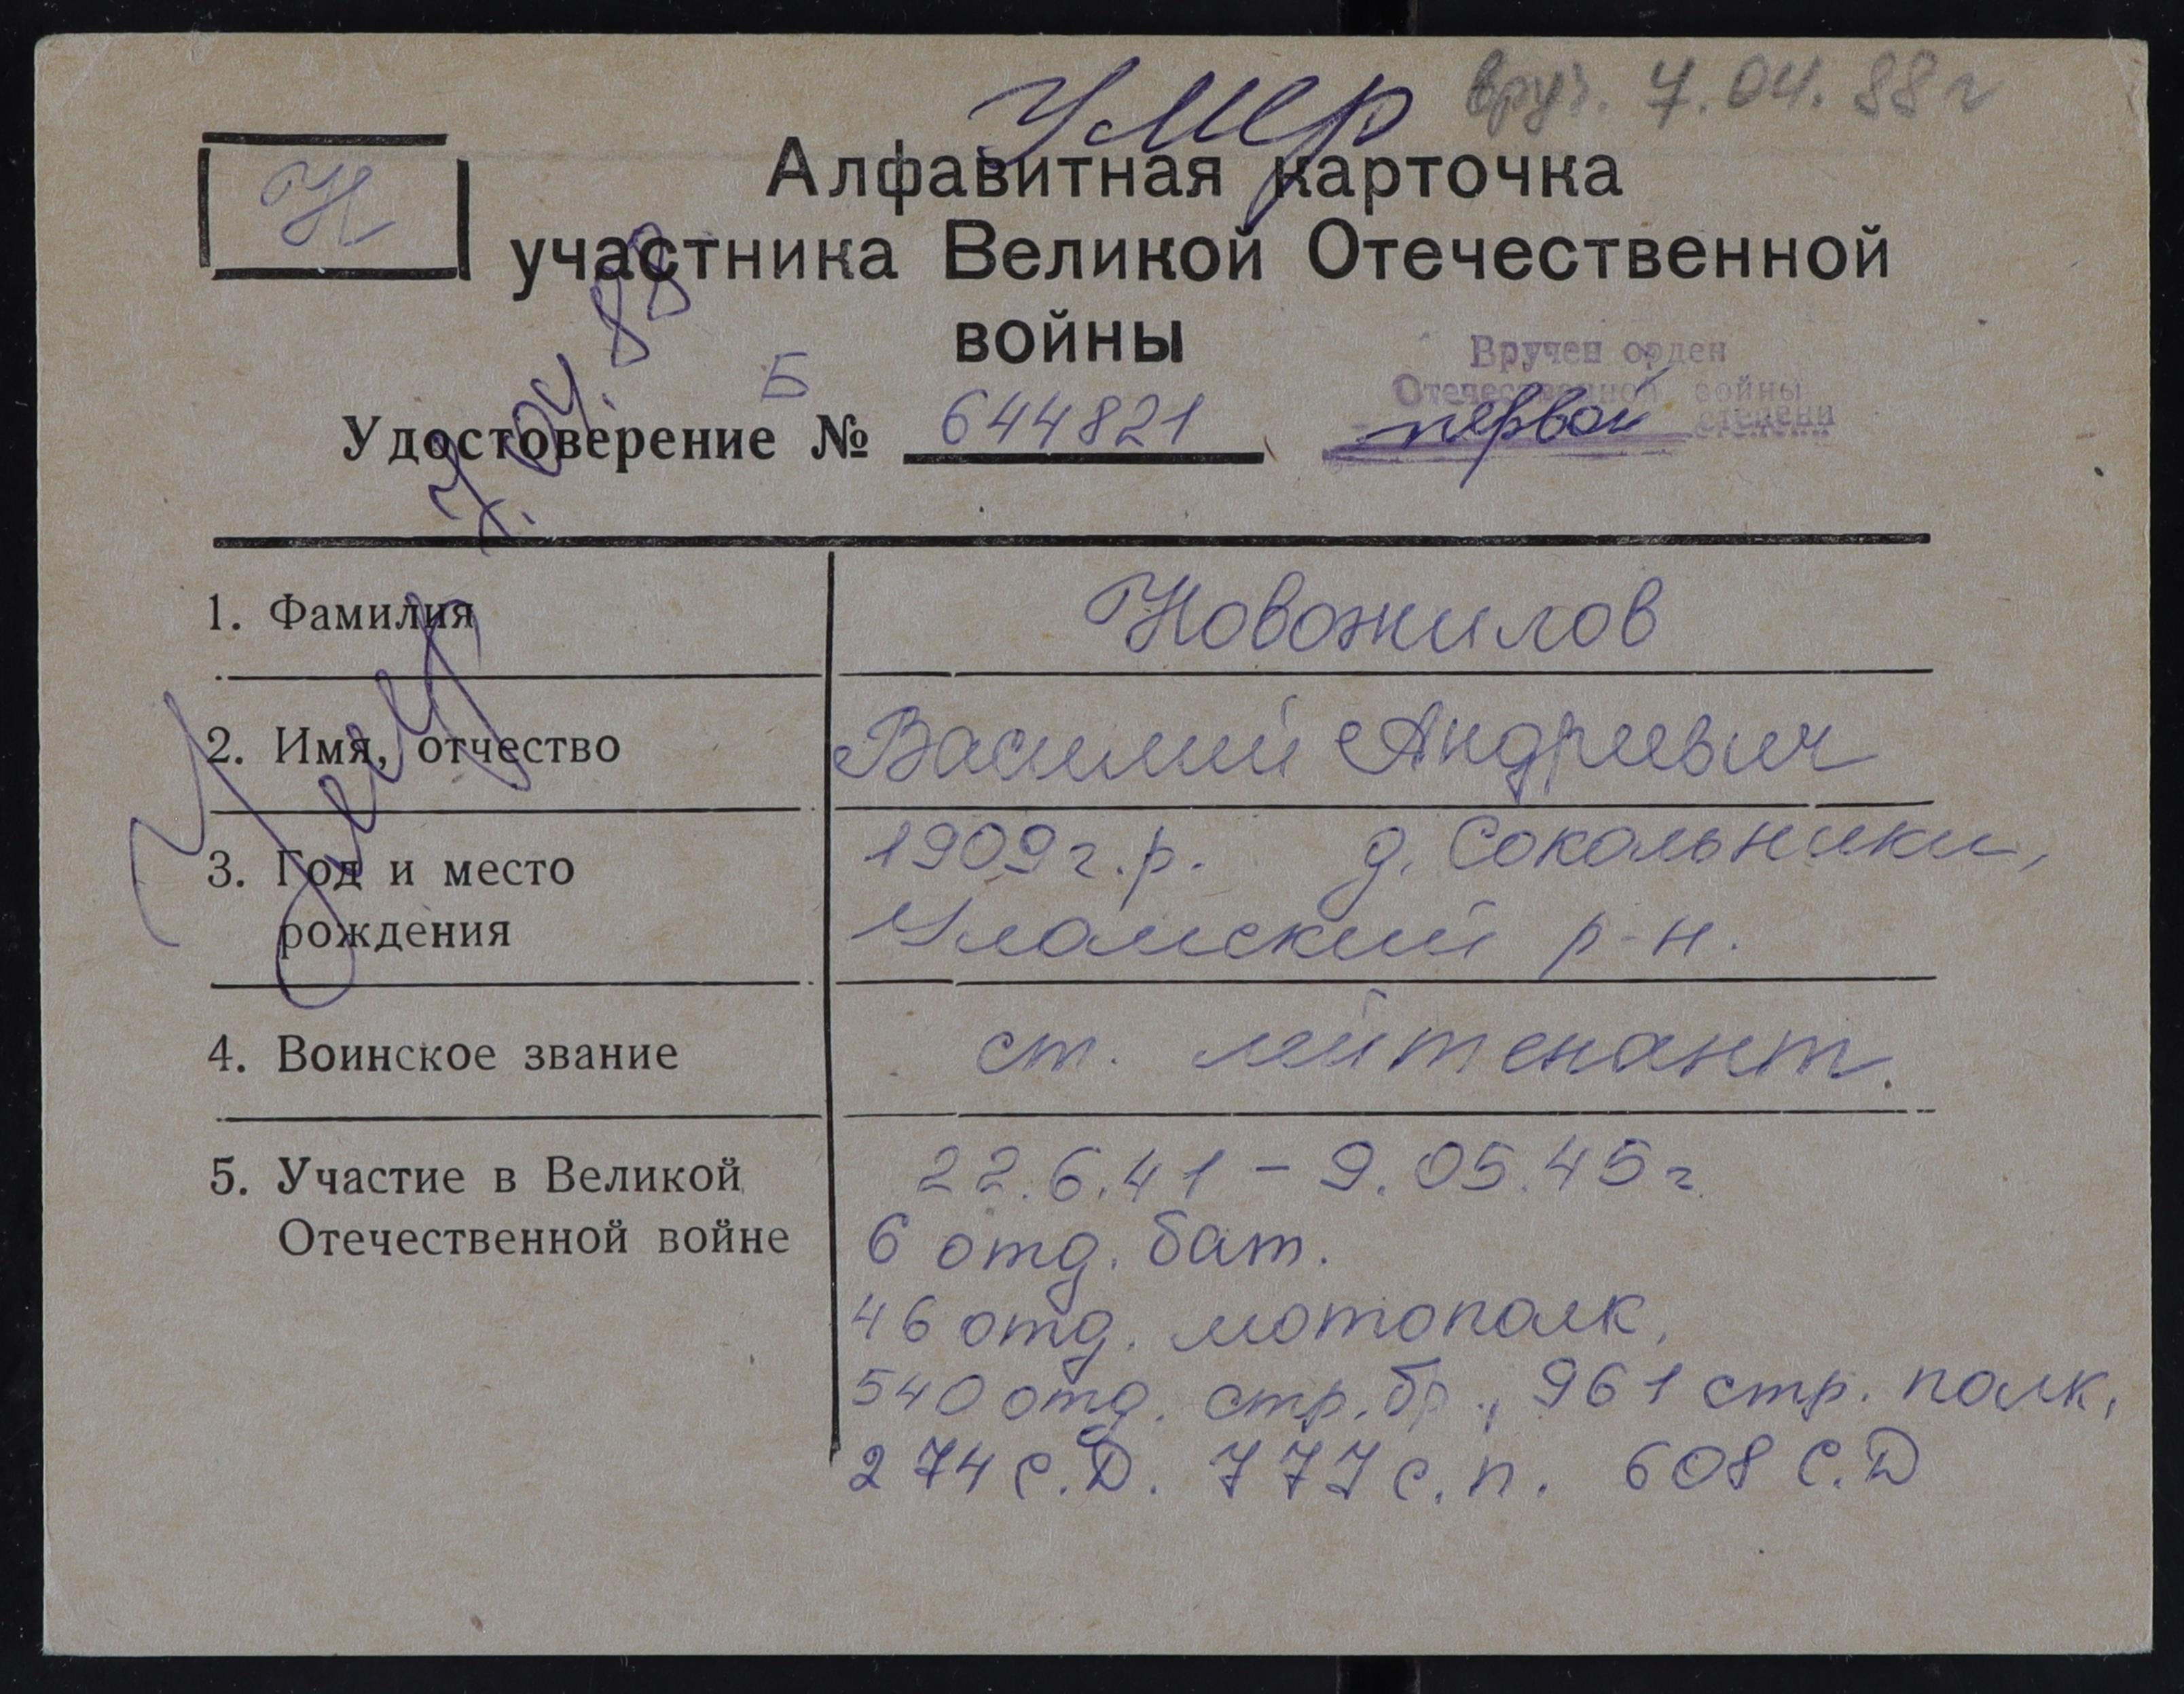 Умер вруч. 7.04.88 г
Н
Алфавитная карточка
участника Великой Отечественной
войны
Вручен орден
Отечественной войны
первой степени
Удостоверение № Б 644821
Умер 7.04.88
1. Фамилия Новожилов
2. Имя, отчество Василий Андреевич
3. Год и место 1909 г.р. д. Сокольники,
рождения Уломский р-н.
4. Воинское звание ст. лейтенант.
5. Участие в Великой 22.6.41 – 9.05.45 г.
Отечественной войне 6 отд. бат.
46 отд. мотополк,
540 отд. стр. бр., 961 стр. полк,
274 С.Д. 777 с.п. 608 С.Д